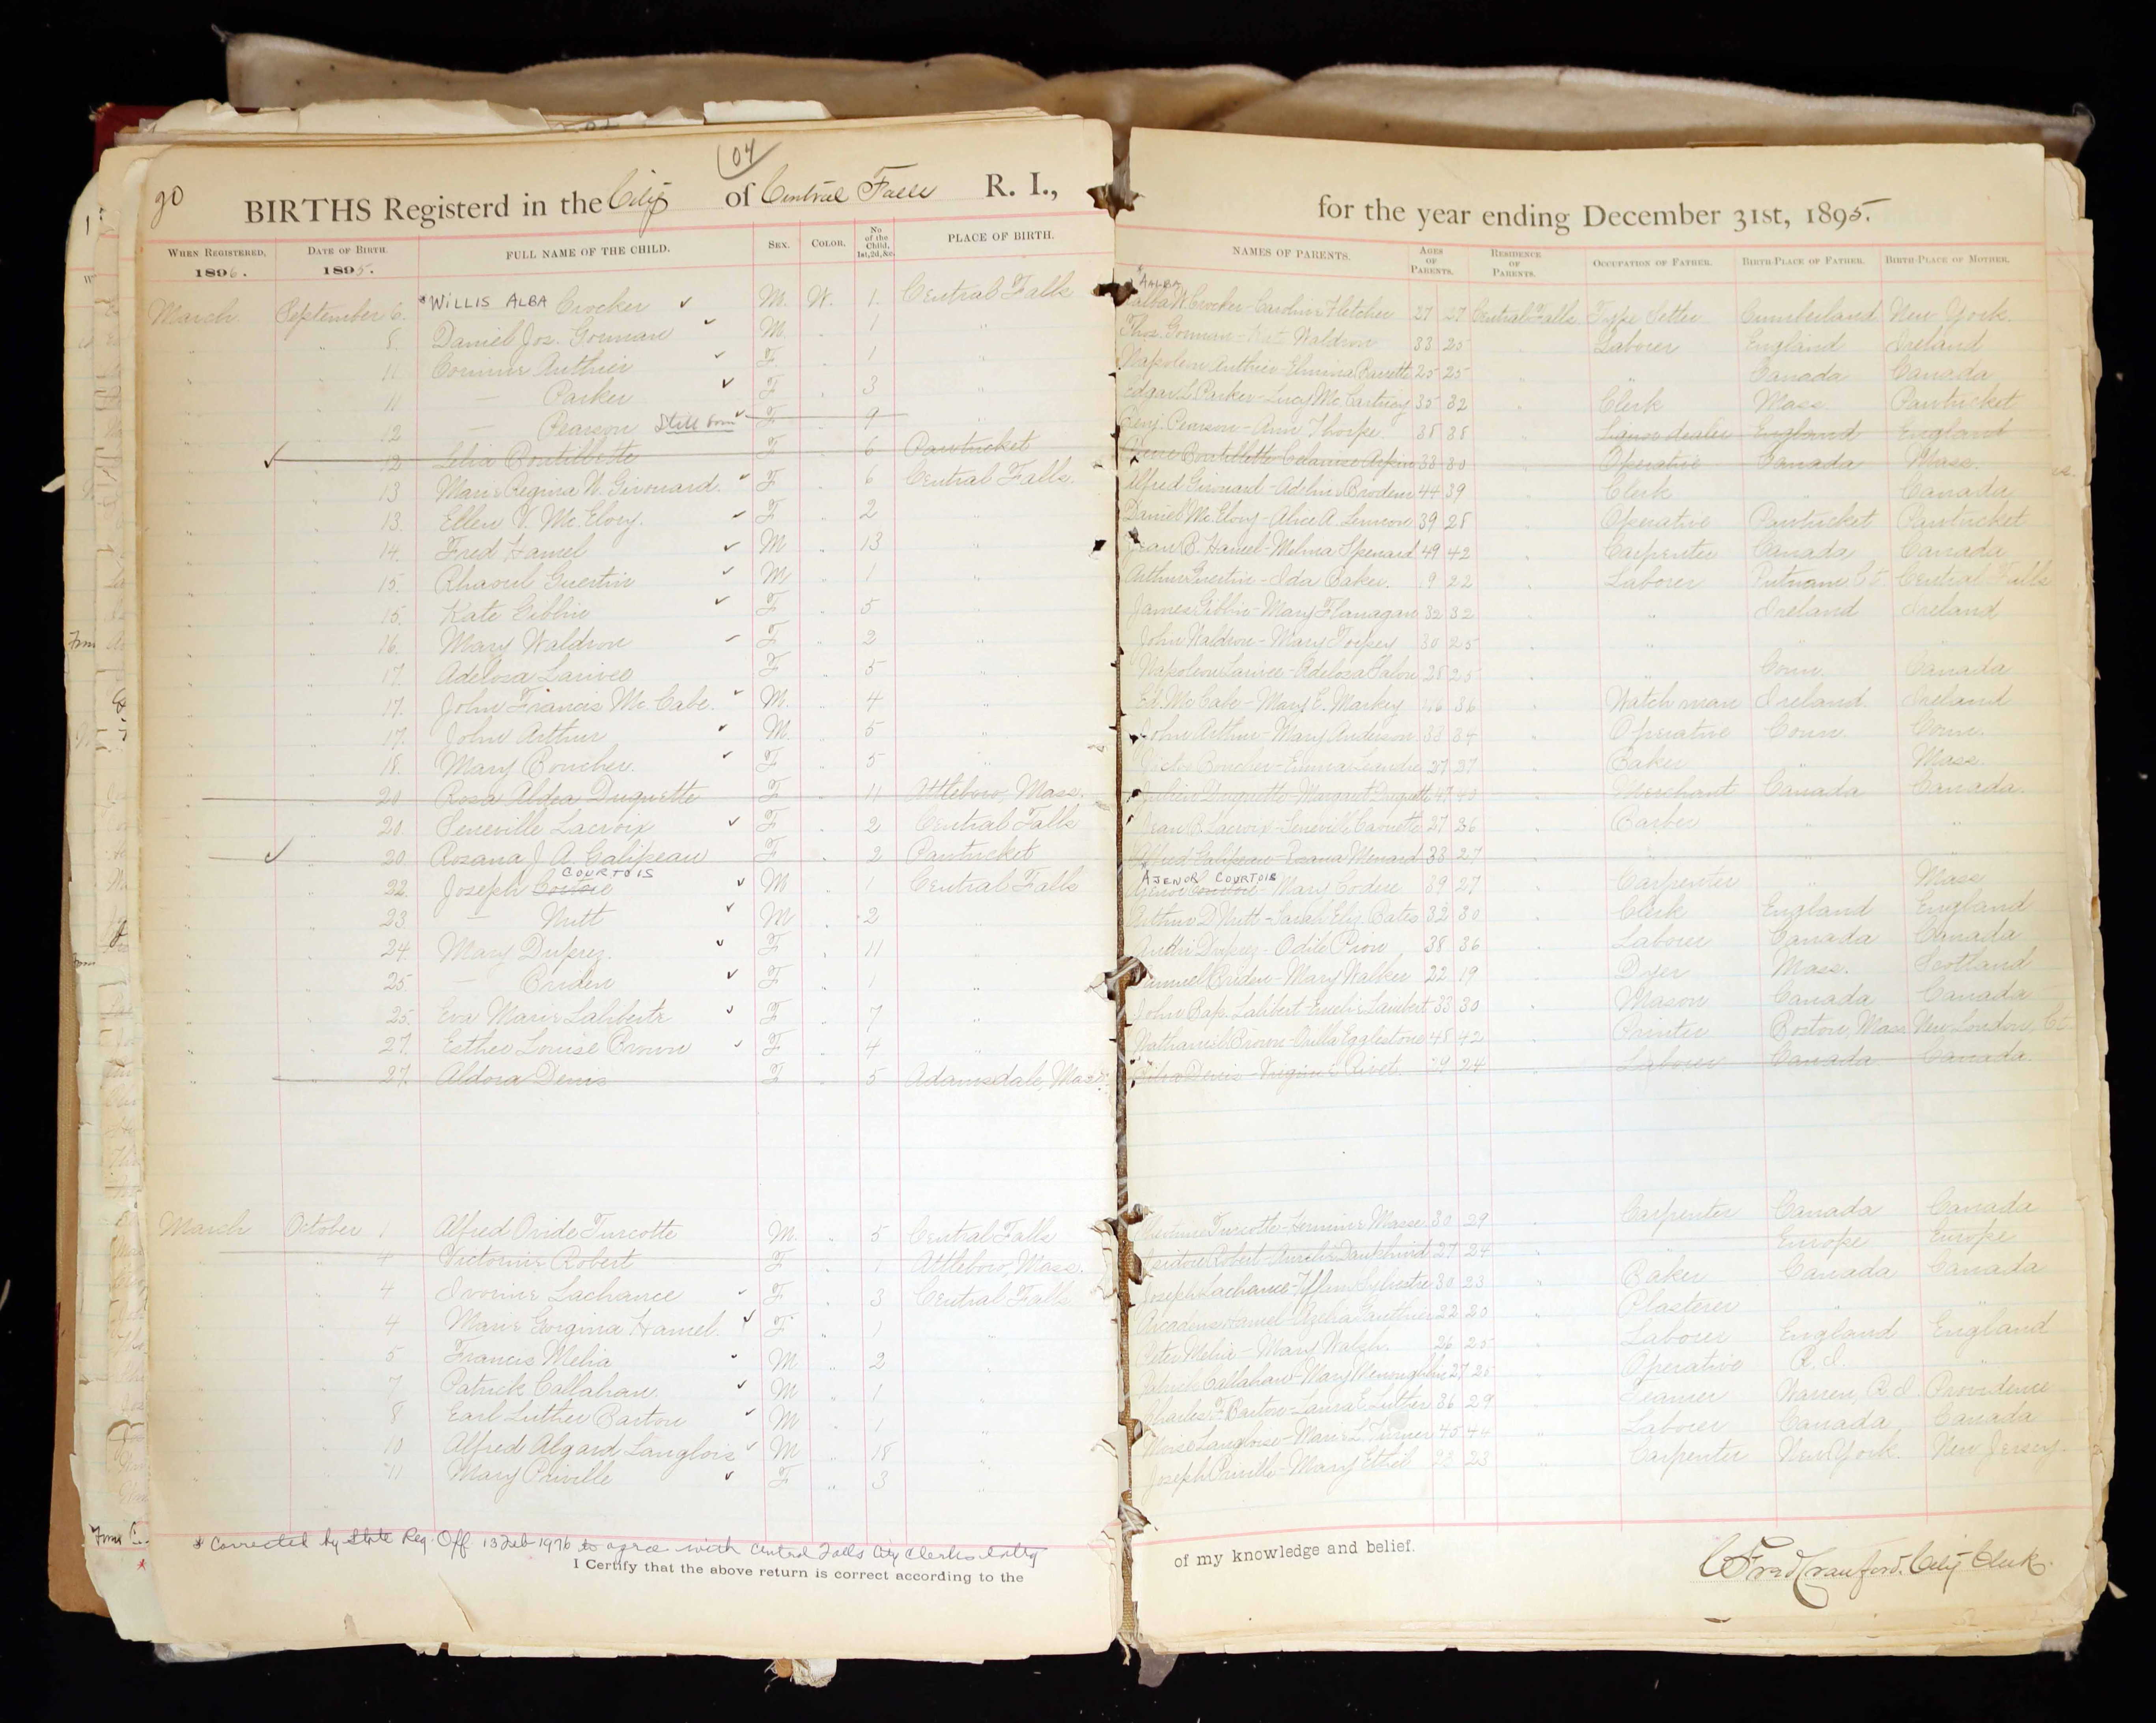 104
90
BIRTHS Registerd in the City of Central Falls R. I., for the year ending December 31st, 1895.
WHEN REGISTERED, 1896. DATE OF BIRTH. 1895. FULL NAME OF THE CHILD. SEX. COLOR. No of the Child, 1st, 2d, &c. PLACE OF BIRTH. NAMES OF PARENTS. AGES OF PARENTS. RESIDENCE OF PARENTS. OCCUPATION OF FATHER. BIRTH-PLACE OF FATHER. BIRTH-PLACE OF MOTHER.
March September 6. * WILLIS ALBA Crocker M. W. 1. Central Falls Crocker - Caroline Fletcher 27 27 Central Falls Type Setter Cumberland New York.
8. Daniel Jos. Gorman M. 1 Thos. Gorman - Waldron 33 25 Laborer England Ireland
11 Corinne Authier F 1 Napoleon Authier - Emma Barrette 25 25 " Canada Canada
11 — Parker F 3 Edgar L Parker - Lucy Mc Cartney 35 32 Clerk Mass. Pawtucket
12 — Pearson Still born F 9 Benj. Pearson - Ann Thorpe 38 38 Liquor dealer England England
12 Lelia F 6 Pawtucket 33 30 Operative Canada Mass.
13 Marie Regina N. Girouard. F 6 Central Falls. Alfred Girouard - Adeline Brodeur 44 39 Clerk " Canada
13. Ellen V. Mc Elroy. F 2 Daniel Mc Elroy - Alice A. Lennon 39 28 Operative Pawtucket Pawtucket
14. Fred Hamel M 13 Jean B. Hamel - Melina Spenard 49 42 Carpenter Canada Canada
15. Rhaoul Guertin M 1 Arthur Guertin - Ida Baker. 22 Laborer Putnam Ct. Central Falls
15. Kate Gibblin F 5 James Gibblin - Mary Flanagan 32 32 " Ireland Ireland
16. Mary Waldron F 2 John Waldron - Mary 30 25 " " "
17. Adelosa Larivee F 5 Napoleon Larivee - Adelosa 28 25 " Conn. Canada
17. John Francis Mc. Cabe. M. 4 Ed. Mc Cabe - Mary E. Markey 36 Watchman Ireland. Ireland
17. John Arthur M. 5 John Arthur - Mary Anderson 33 34 Operative Conn. Conn.
18. Mary Boucher. F 5 Boucher - Emma 37 37 Baker " Mass.
20 Rosa Aldea Duquette F 11 Attleboro, Mass. Julien Duquette - Margaret Duquette 47 43 Merchant Canada Canada.
20. Seneville Lacroix F 2 Central Falls Jean B. Lacroix - Seneville 27 26 Barber " "
20. Rozana J. A. Galipeau F 2 Pawtucket Alfred Galipeau - Rozana Menard 33 27 " " "
COURTOIS AJENOR COURTOIS
22. Joseph M 1 Central Falls Mary Codere 39 27 Carpenter " Mass
23 — Nutt M 2 Arthur D. Nutt - Sarah Eliz. Bates 32 30 Clerk England England
24. Mary Duprez. F 11 Duprez - Odile Pion 38 36 Laborer Canada Canada
25 — Briden F 1 Samuel Briden - Mary Walker 22 19 Dyer Mass. Scotland
25. Eva Marie Laliberte F 7 John Bap. Lalibert - Lambert 33 30 Mason Canada Canada
27. Esther Louise Brown F 4 Nathaniel Brown - Egglestone 48 42 Painter Boston, Mass New London, Ct.
27. Aldora Denis F 5 Adamsdale, Mass. Denis - Virginie Rivet. 29 24 Laborer Canada Canada.
March October 1 Alfred Ovide Turcotte M. 5 Central Falls Turcotte - Hermine Masse 30 29 Carpenter Canada Canada
4 Victorine Robert F 1 Attleboro, Mass. Isidore Robert 27 24 " Europe Europe
4 Ivonne Lachance F 3 Central Falls Joseph Lachance 30 23 Baker Canada Canada
4 Marie Gorgina Hamel. F 1 Hamel - Azelia Gauthier 22 20 Plasterer " "
5 Francis Melia M 2 Peter Melia - Mary Walsh. 26 25 Laborer England England
7 Patrick Callahan. M 1 Patrick Callahan - Mary 27 25 Operative R. I. "
8 Earl Luther Barton M 1 Charles F. Barton - Laura E. Luther 36 29 Teamer Warren, R. I Providence
10 Alfred Algard Langlois M 18 Moise Langloise - Marie L. Turner 45 44 Laborer Canada Canada
11 Mary Priville F 3 Joseph Priville - Mary Ethel 23 Carpenter New York. New Jersey
* Corrected by State Reg. Off 13 Feb 1976 to agree with Central Falls City Clerks entry
I Certify that the above return is correct according to the of my knowledge and belief.
C Fred Crawford. City Clerk.